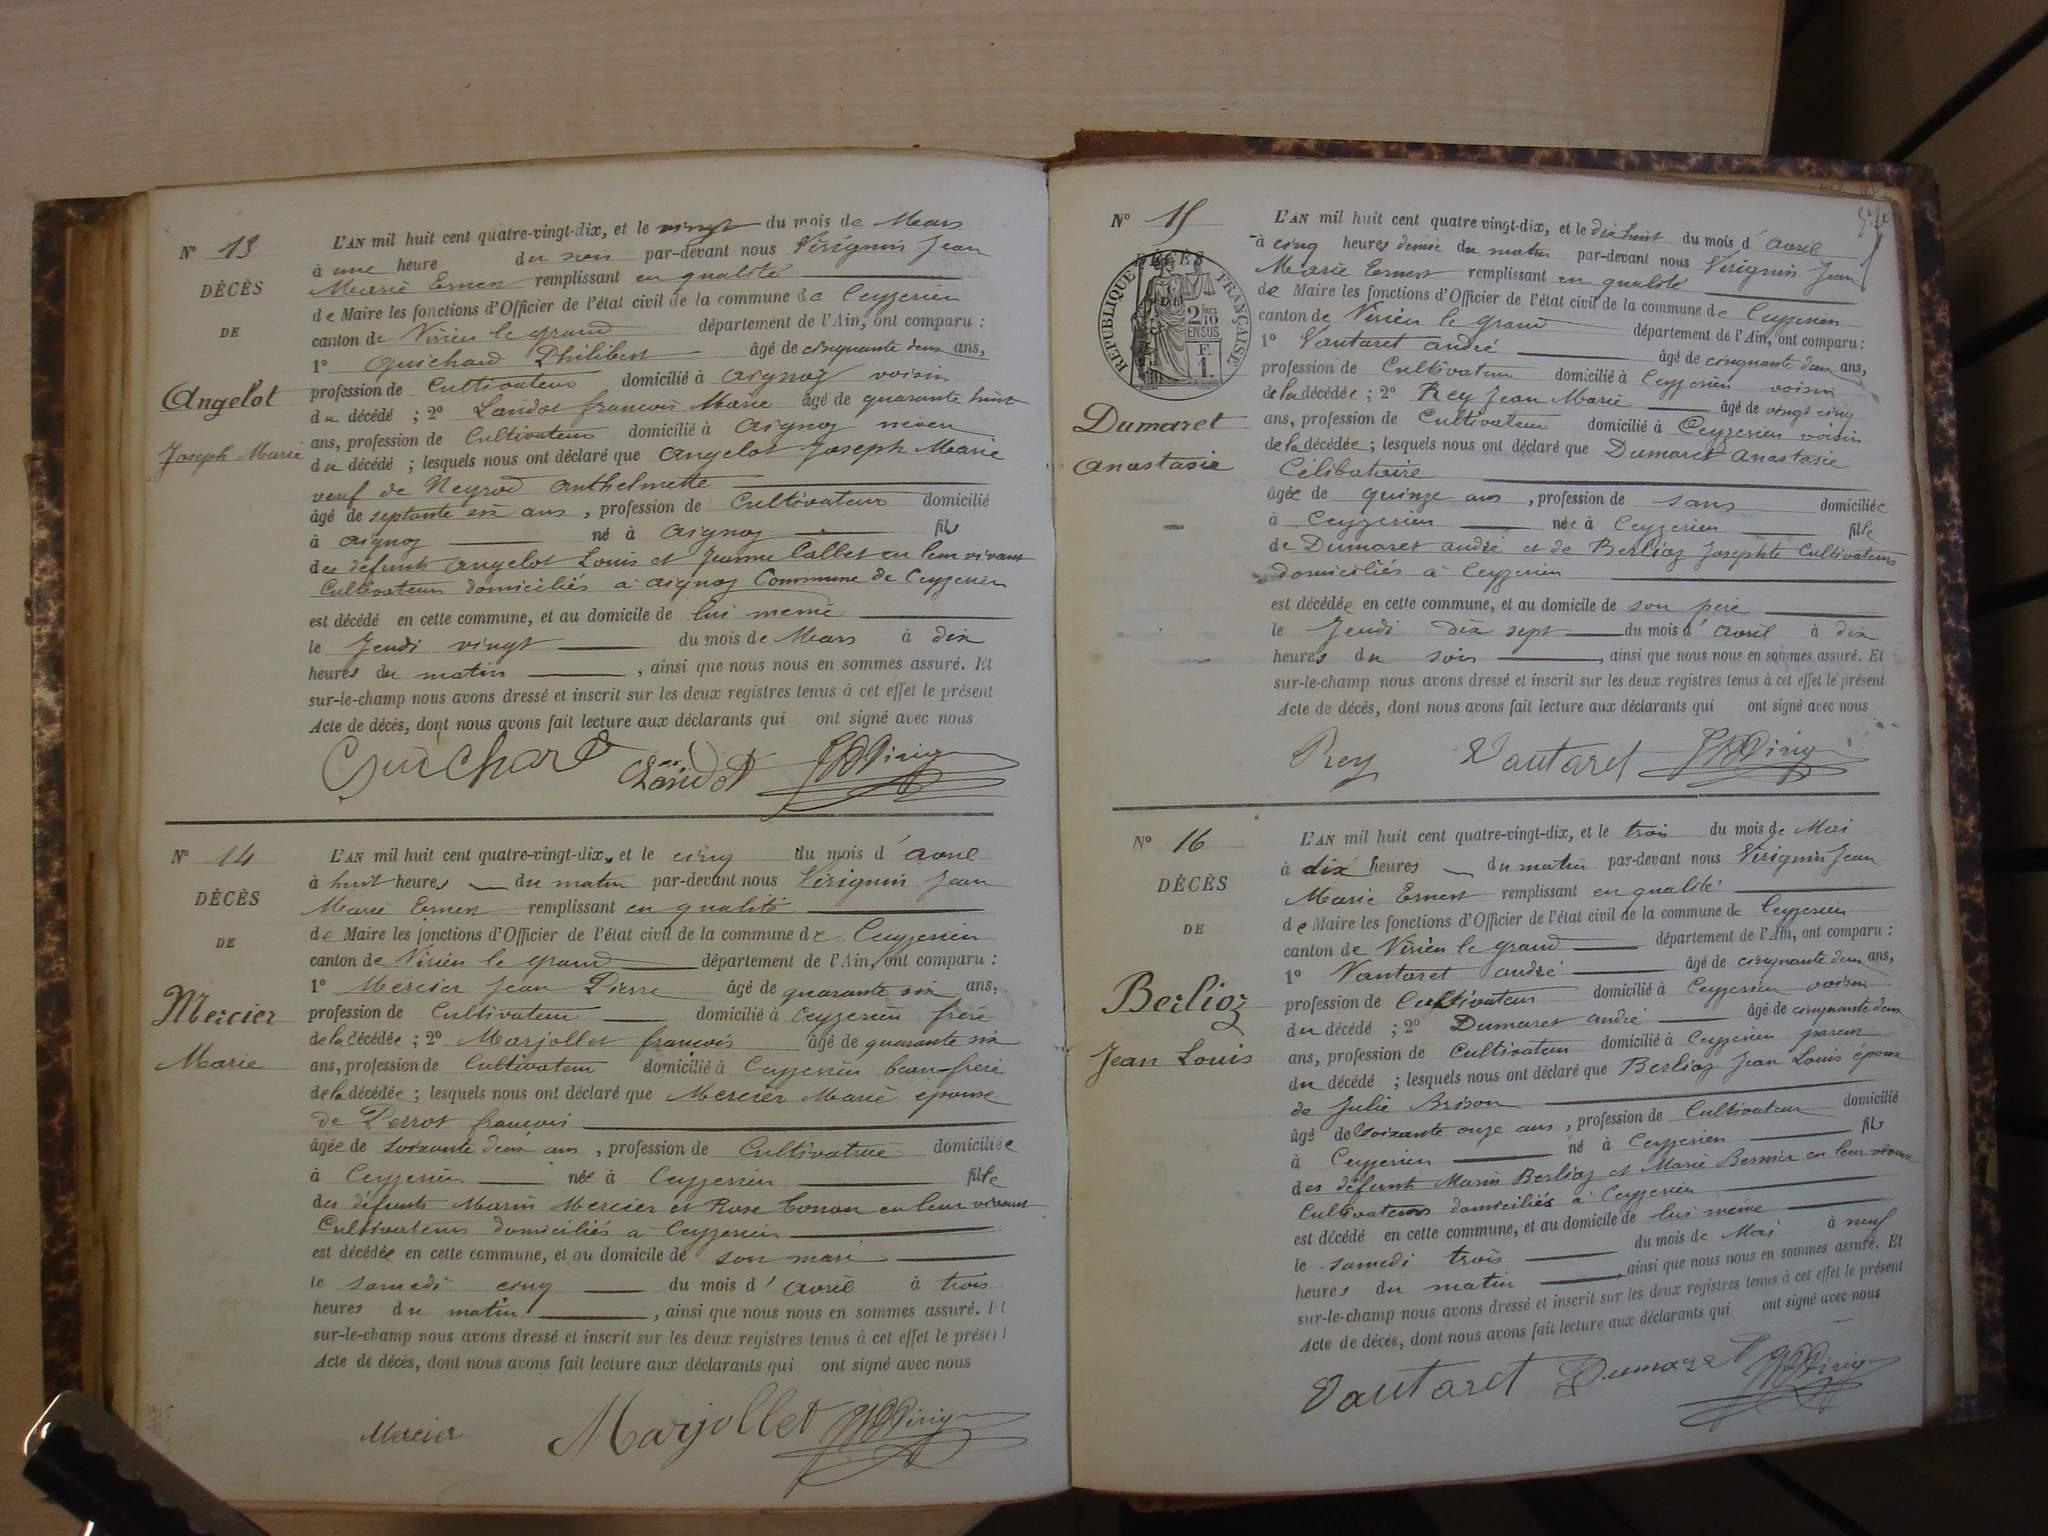 N° 13
DÉCÈS
DE
Angelot
Joseph Marie
L'AN mil huit cent quatre-vingt-dix, et le vingt du mois de Mars
à une heure du soir par-devant nous Virignin Jean
Marie Ernest remplissant en qualité
de Maire les fonctions d'Officier de l'état civil de la commune de Ceyzerieu
canton de Virieu le grand département de l'Ain, ont comparu :
1° Guichard Philibert âgé de cinquante deux ans,
profession de Cultivateur domicilié à Aignoz voisin
du décédé ; 2° Landot françois Marie âgé de quarante huit
ans, profession de Cultivateur domicilié à Aignoz neveu
du décédé ; lesquels nous ont déclaré que Angelot Joseph Marie
veuf de Neyrod Anthelmette
âgé de septante six ans, profession de Cultivateur domicilié
à Aignoz né à Aignoz fils
des défunts Angelot Louis et Jeanne Callet en leur vivant
Cultivateurs domiciliés à Aignoz Commune de Ceyzerieu
est décédé en cette commune, et au domicile de lui même
le Jeudi vingt du mois de Mars à dix
heures du matin, ainsi que nous nous en sommes assuré. Et
sur-le-champ nous avons dressé et inscrit sur les deux registres tenus à cet effet le présent
Acte de décès, dont nous avons fait lecture aux déclarants qui ont signé avec nous
Guichard Landot
N° 14
DÉCÈS
DE
Mercier
Marie
L'AN mil huit cent quatre-vingt-dix, et le cinq du mois d'avril
à huit heures du matin par-devant nous Virignin Jean
Marie Ernest remplissant en qualité
de Maire les fonctions d'Officier de l'état civil de la commune de Ceyzerieu
canton de Virieu le grand département de l'Ain, ont comparu :
1° Mercier Jean Pierre âgé de quarante six ans,
profession de Cultivateur domicilié à Ceyzerieu frère
de la décédée ; 2° Marjollet françois âgé de quarante six
ans, profession de Cultivateur domicilié à Ceyzerieu beau-frère
de la décédée ; lesquels nous ont déclaré que Mercier Marie épouse
de Perrot françois
âgée de soixante deux ans, profession de Cultivatrice domiciliée
à Ceyzerieu née à Ceyzerieu fille
des défunts Marin Mercier et Rose Conon en leur vivant
Cultivateurs domiciliés à Ceyzerieu
est décédée en cette commune, et au domicile de son mari
le samedi cinq du mois d'avril à trois
heures du matin, ainsi que nous nous en sommes assuré. Et
sur-le-champ nous avons dressé et inscrit sur les deux registres tenus à cet effet le présent
Acte de décès, dont nous avons fait lecture aux déclarants qui ont signé avec nous
Mercier Marjollet
N° 15
DÉCÈS
RÉPUBLIQUE FRANÇAISE
2/10 EN SUS
F. 1.
Dumaret
Anastasie
L'AN mil huit cent quatre-vingt-dix, et le dix huit du mois d'avril
à cinq heures demie du matin par-devant nous Virignin Jean
Marie Ernest remplissant en qualité
de Maire les fonctions d'Officier de l'état civil de la commune de Ceyzerieu
canton de Virieu le grand département de l'Ain, ont comparu :
1° Vautaret André âgé de cinquante deux ans,
profession de Cultivateur domicilié à Ceyzerieu voisin
de la décédée ; 2° Rey Jean Marie âgé de vingt cinq
ans, profession de Cultivateur domicilié à Ceyzerieu voisin
de la décédée ; lesquels nous ont déclaré que Dumaret Anastasie
Célibataire
âgée de quinze ans, profession de sans domiciliée
à Ceyzerieu née à Ceyzerieu fille
de Dumaret André et de Berlioz Josephte Cultivateurs
domiciliés à Ceyzerieu
est décédée en cette commune, et au domicile de son père
le Jeudi dix sept du mois d'avril à dix
heures du soir, ainsi que nous nous en sommes assuré. Et
sur-le-champ nous avons dressé et inscrit sur les deux registres tenus à cet effet le présent
Acte de décès, dont nous avons fait lecture aux déclarants qui ont signé avec nous
Rey Vautaret
N° 16
DÉCÈS
DE
Berlioz
Jean Louis
L'AN mil huit cent quatre-vingt-dix, et le trois du mois de Mai
à dix heures du matin par-devant nous Virignin Jean
Marie Ernest remplissant en qualité
de Maire les fonctions d'Officier de l'état civil de la commune de Ceyzerieu
canton de Virieu le grand département de l'Ain, ont comparu :
1° Vautaret André âgé de cinquante deux ans,
profession de Cultivateur domicilié à Ceyzerieu voisin
du décédé ; 2° Dumaret André âgé de cinquante deux
ans, profession de Cultivateur domicilié à Ceyzerieu parent
du décédé ; lesquels nous ont déclaré que Berlioz Jean Louis époux
de Julie Brison
âgé de soixante onze ans, profession de Cultivateur domicilié
à Ceyzerieu né à Ceyzerieu fils
des défunts Marin Berlioz et Marie Bernier en leur vivant
Cultivateurs domiciliés à Ceyzerieu
est décédé en cette commune, et au domicile de lui même
le samedi trois du mois de Mai à neuf
heures du matin, ainsi que nous nous en sommes assuré. Et
sur-le-champ nous avons dressé et inscrit sur les deux registres tenus à cet effet le présent
Acte de décès, dont nous avons fait lecture aux déclarants qui ont signé avec nous
Vautaret Dumaret